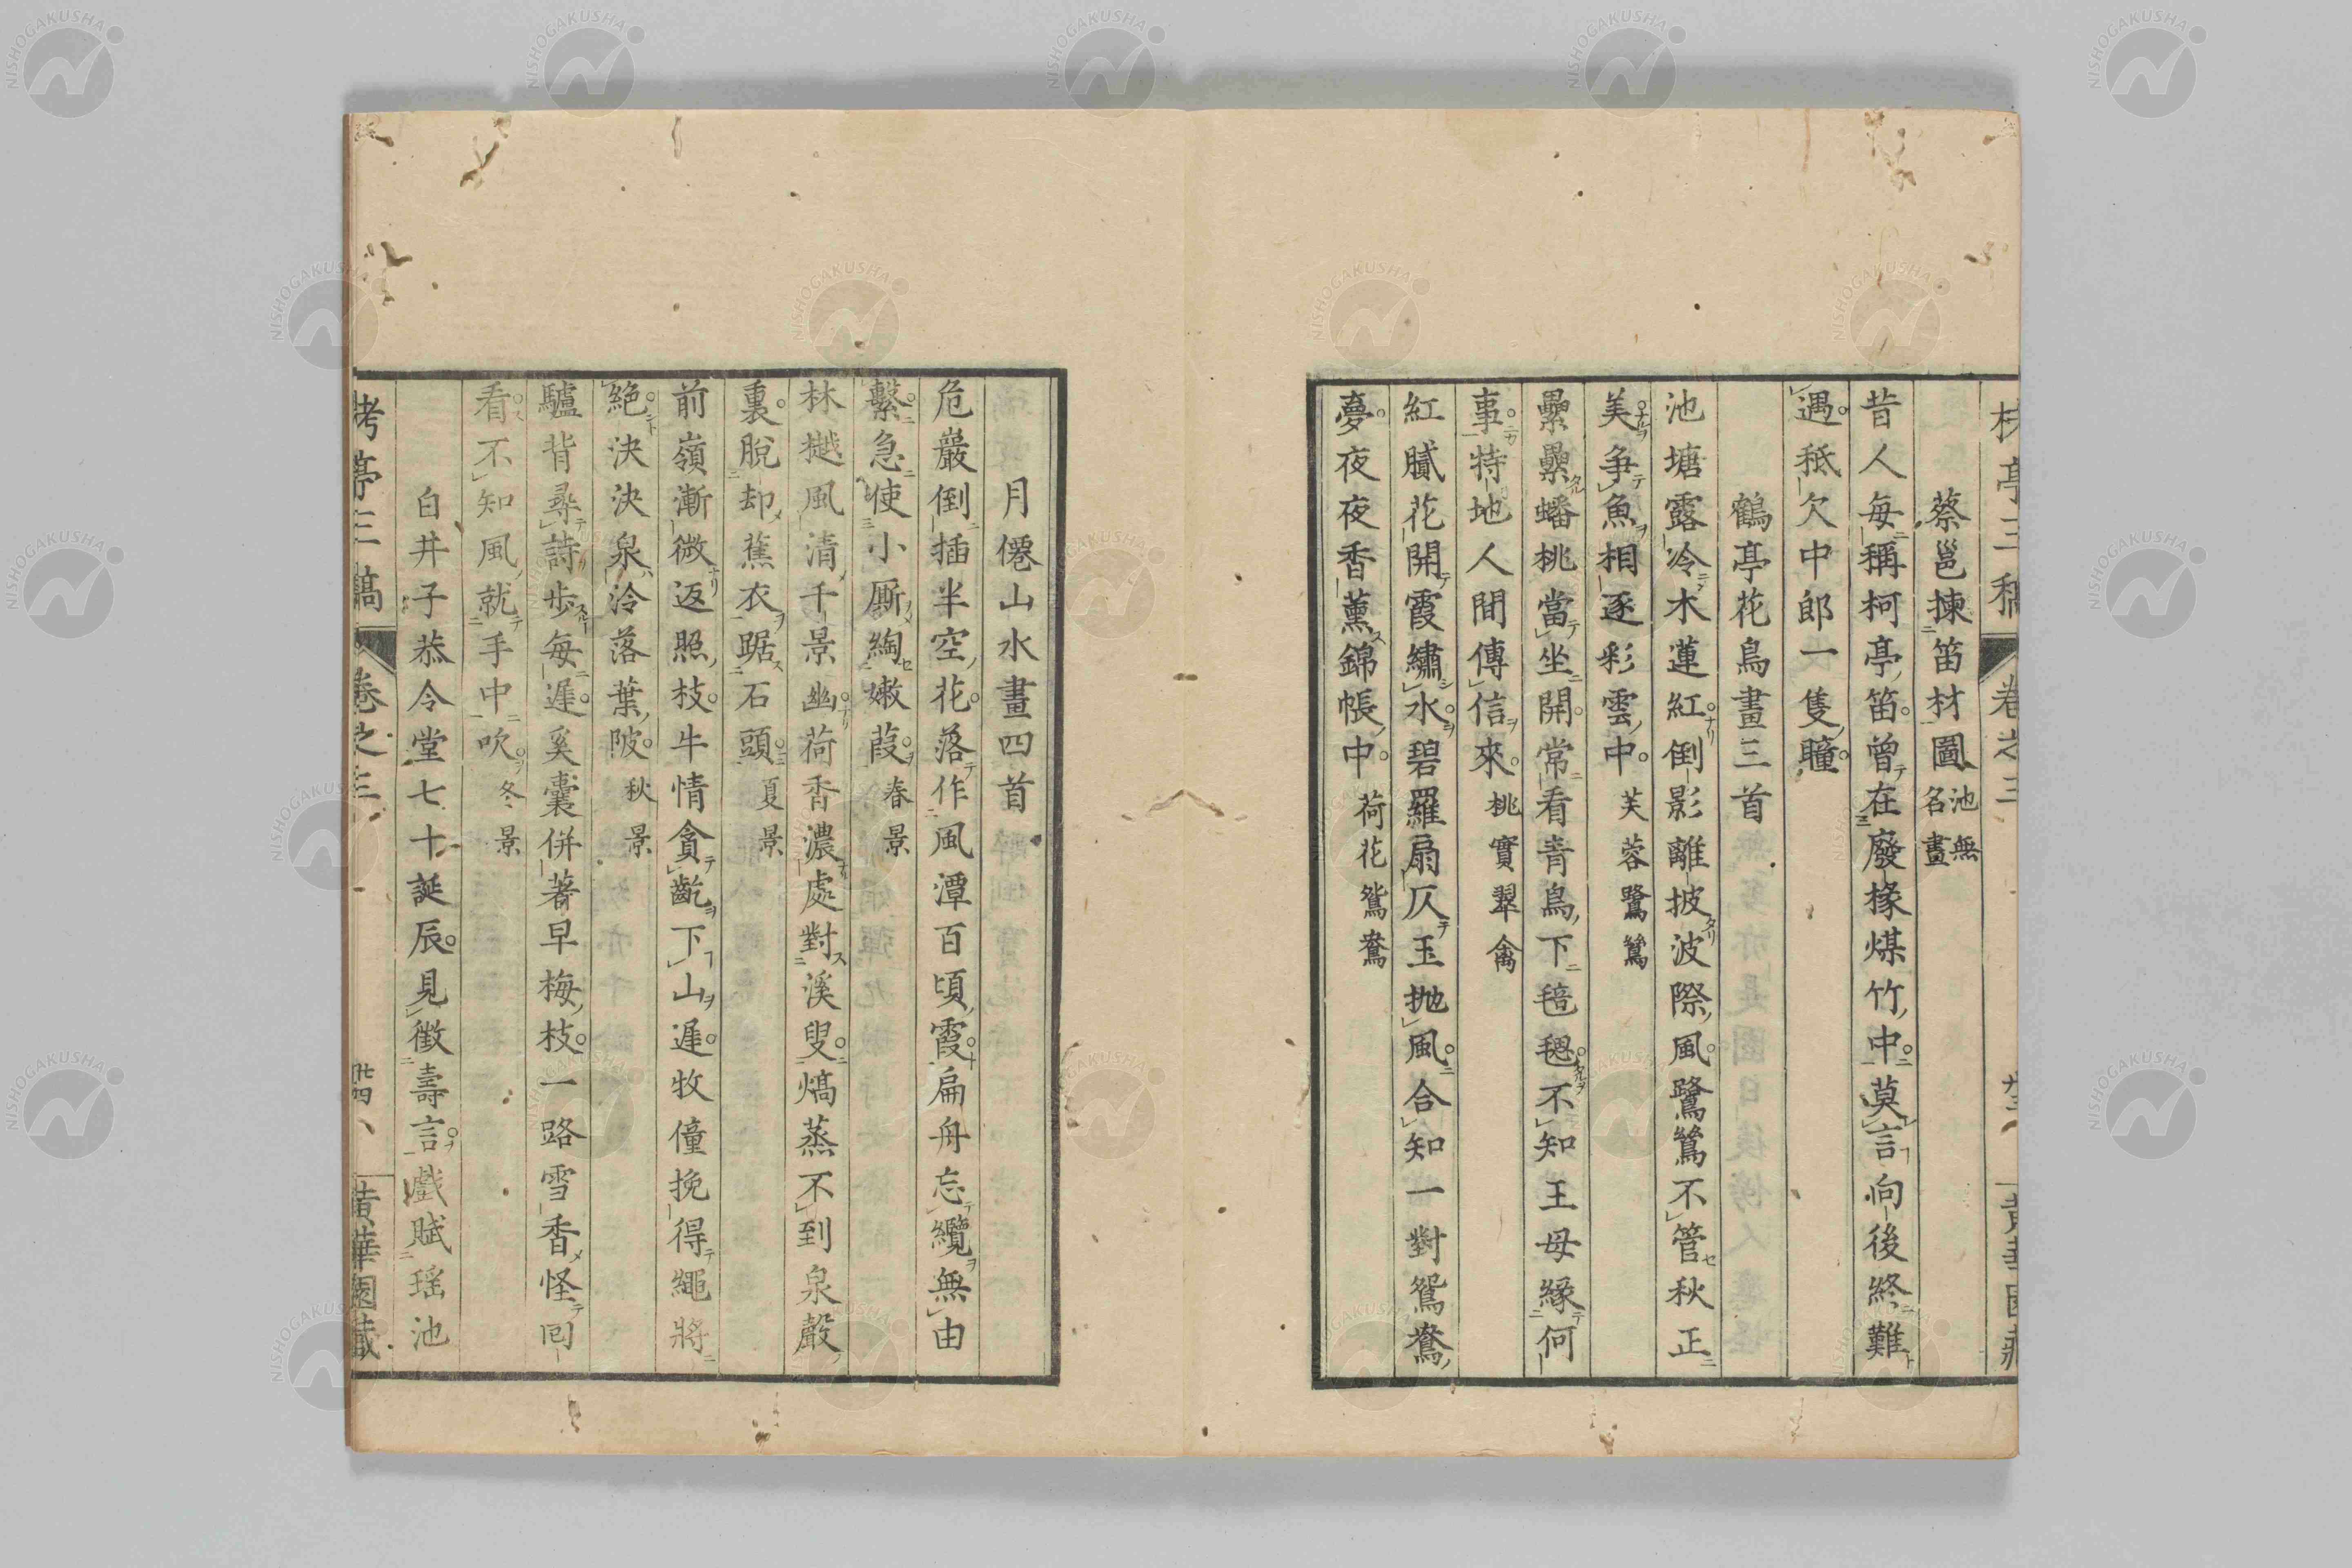 亭三稿 卷之三 廿三 黄華園藏
蔡邕揀笛材圖 池無名畫
昔人毎稱柯亭笛曾在廢椽煤竹中莫言向後終難
遇秪欠中郎一隻瞳
鶴亭花鳥畫三首
池塘露冷木蓮紅倒影離披波際風鷺鷥不管秋正
美爭魚相逐彩雲中 芙蓉鷺鷥
纍纍蟠桃當坐開常看青鳥下毰毸不知王母緣何
事特地人間傳信來 桃實翠禽
紅膩花開霞繡水碧羅扇仄玉抛風合知一對鴛鴦
夢夜夜香薰錦帳中 荷花鴛鴦
月僊山水畫四首
危巖倒插半空花落作風潭百頃霞扁舟忘纜無由
繫急使小厮綯嫩葭 春景
林樾風清千景幽荷香濃處對溪叟熇蒸不到泉聲
裏脫却蕉衣踞石頭 夏景
前嶺漸微返照枝牛情貪齕下山遲牧僮挽得繩將
絕決決泉泠落葉陂 秋景
驢背尋詩步毎遲奚囊併著早梅枝一路雪香怪囘
看不知風就手中吹 冬景
白井子恭令堂七十誕辰見徴壽言戲賦瑶池
栲亭三稿 卷之三 廿四 黄華園藏
NISHOGAKUSHA